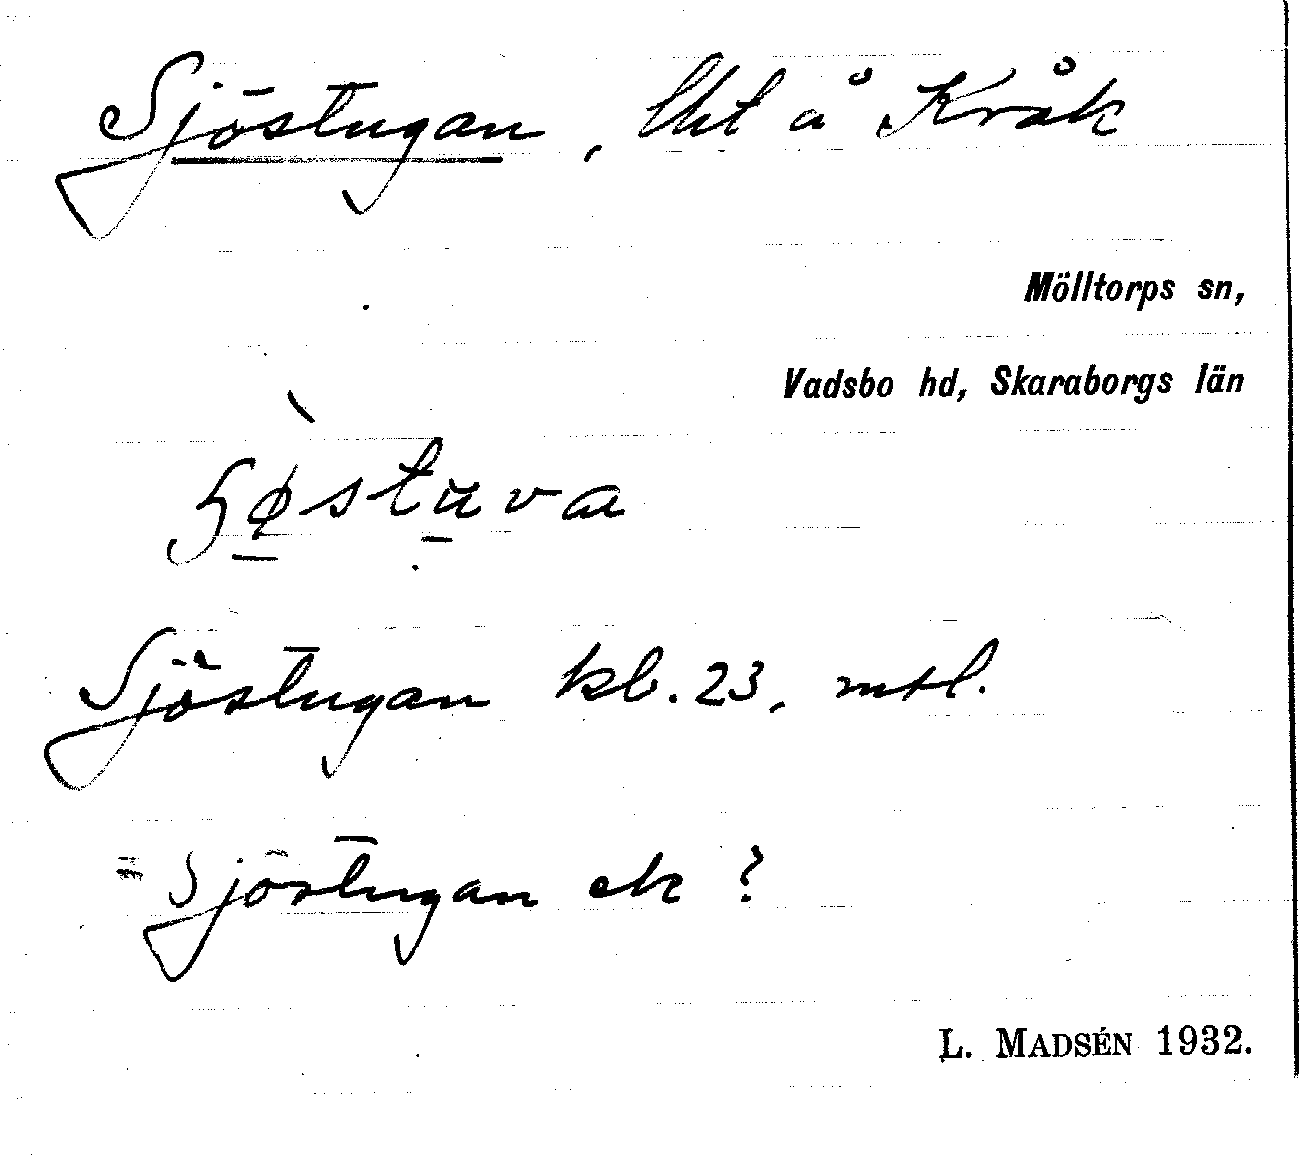 Sjöstugan, lht å Kråk
Mölltorps sn,
Vadsbo hd, Skaraborgs län
Sjöstugan kb. 23, mtl.
= Sjöstugan ek ?
L. MADSÉN 1932.